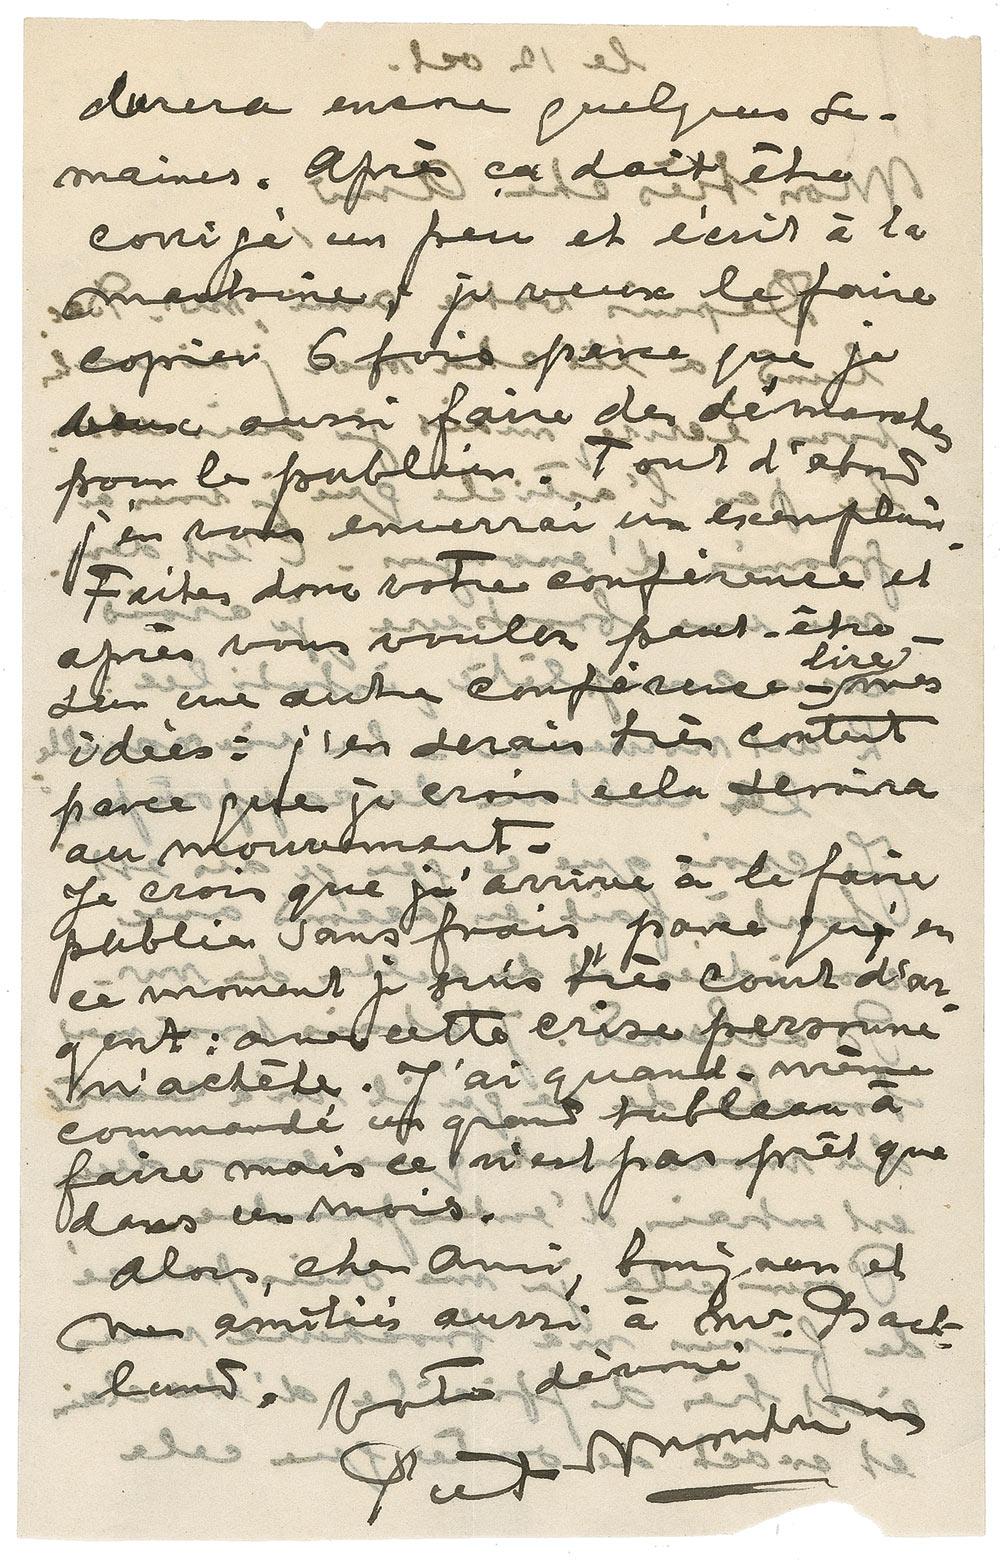 durera encore quelques se-
maines. Après ça doit être
corrigé un peu et écrit à la
machine, je veux le faire
copier 6 fois parce que je
veux aussi faire des démarches
pour le publier. Tout d'abord
j'en vous enverrai un exemplair.
Faites donc votre conférence et
après vous voulez peut-être -
sur une autre conférence - lire mes
idées: j'en serais très content
parce que je crois cela servira
au mouvement.
Je crois que j'arrive à le faire
publier sans frais, parce qu'en
ce moment je suis très court d'ar-
gent: avec cette crise personne
n'achète. J'ai quand-même
commandé un grand tableau à
faire mais ce n'est pas prêt que
dans un mois.
Alors, cher Ami, bonjour et
mes amitiés aussi à mr.
votre dévoué
Piet Mondrian